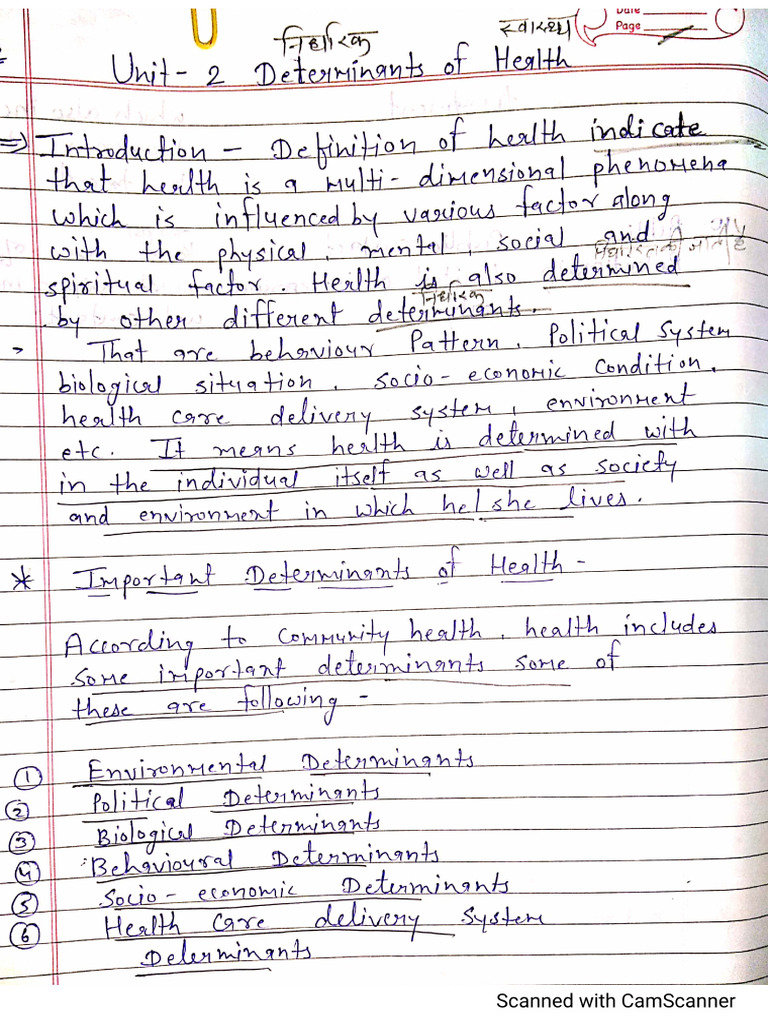 Date
Page
निर्धारक स्वास्थ्य
Unit - 2 Determinants of Health
=> Introduction - Definition of health indicate
that health is a multi-dimensional phenomena
which is influenced by various factor along
with the physical, mental, social and
spiritual factor. Health is also determined
निर्धारक
by other different determinants.
- That are behaviour Pattern, Political System
biological situation, socio-economic condition,
health care delivery system, environment
etc. It means health is determined with
in the individual itself as well as society
and environment in which he/she lives.
* Important Determinants of Health -
According to community health, health includes
some important determinants some of
these are following -
① Environmental Determinants
② Political Determinants
③ Biological Determinants
④ Behavioural Determinants
⑤ Socio-economic Determinants
⑥ Health Care delivery System
Determinants
Scanned with CamScanner